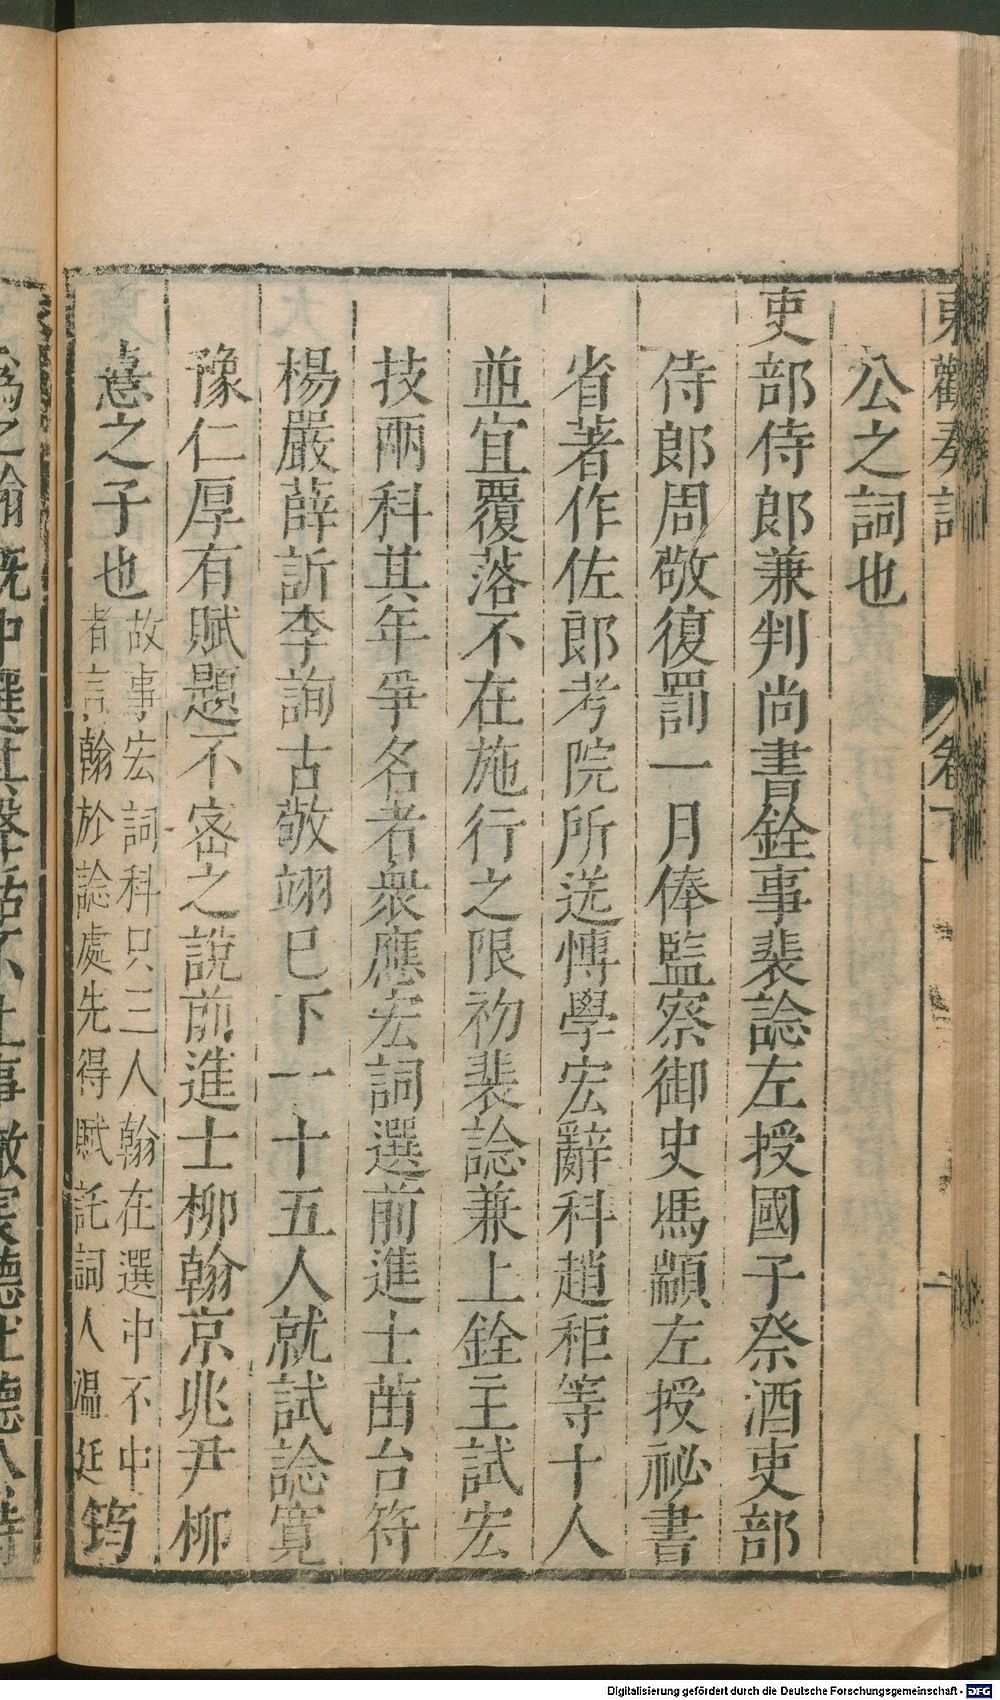 東觀奏記 卷下 二
公之詞也
吏部侍郎兼判尚書銓事裴諗左授國子祭酒吏部
侍郎周敬復罰一月俸監察御史馮顓左授祕書
省著作佐郎考院所送愽學宏辭科趙秬等十人
並宜覆落不在施行之限初裴諗兼上銓主試宏
技兩科其年爭名者衆應宏詞選前進士苗台符
楊嚴薛訢李詢古敬翊巳下一十五人就試諗寬
豫仁厚有賦題不宻之說前進士柳翰京兆尹柳
憙之子也
故事宏詞科只三人翰在選中不中
者言翰於諗處先得賦託詞人温廷
筠
爲之翰既中選其聲聒不止事徹宸聽
Digitalisierung gefördert durch die Deutsche Forschungsgemeinschaft - DFG